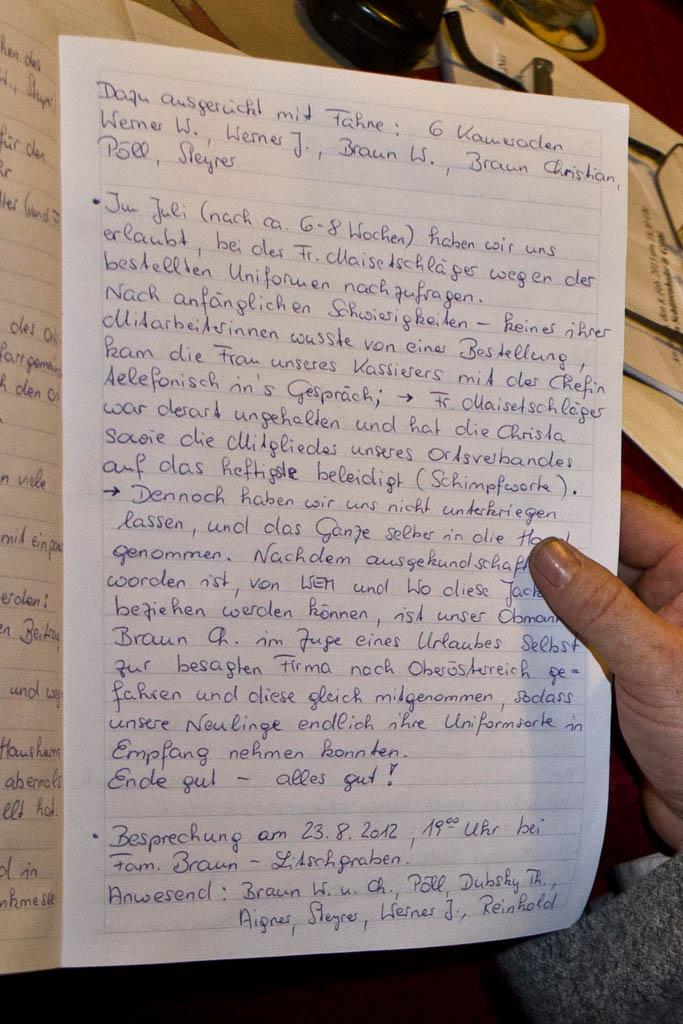 Dazu ausgerückt mit Fahne: 6 Kameraden
Werner W., Werner J., Braun W., Braun Christian,
Pöll, Steyrer
• Im Juli (nach ca. 6-8 Wochen) haben wir uns
erlaubt, bei der Fr. Maisetschläger wegen der
bestellten Uniformen nachzufragen.
Nach anfänglichen Schwierigkeiten – keiner ihrer
Mitarbeiterinnen wusste von einer Bestellung,
kam die Frau unseres Kassierers mit der Chefin
telefonisch in's Gespräch; → Fr. Maisetschläger
war derart ungehalten und hat die Christa
sowie die Mitglieder unseres Ortsverbandes
auf das heftigste beleidigt (Schimpfworte).
→ Dennoch haben wir uns nicht unterkriegen
lassen, und das Ganze selber in die
genommen. Nachdem ausgekundschaf
worden ist, von WEM und Wo diese Jack
beziehen werden können, ist unser Obmann
Braun Ch. im Zuge eines Urlaubes selbst
zur besagten Firma nach Oberösterreich ge=
fahren und diese gleich mitgenommen, sodass
unsere Neulinge endlich ihre Uniformsorte in
Empfang nehmen konnten.
Ende gut – alles gut!
• Besprechung am 23.8.2012, 19⁰⁰ Uhr bei
Fam. Braun – Litschgraben.
Anwesend: Braun W. u. Ch., Pöll, Dubsky Th.,
Aigner, Steyrer, Werner J., Reinhold